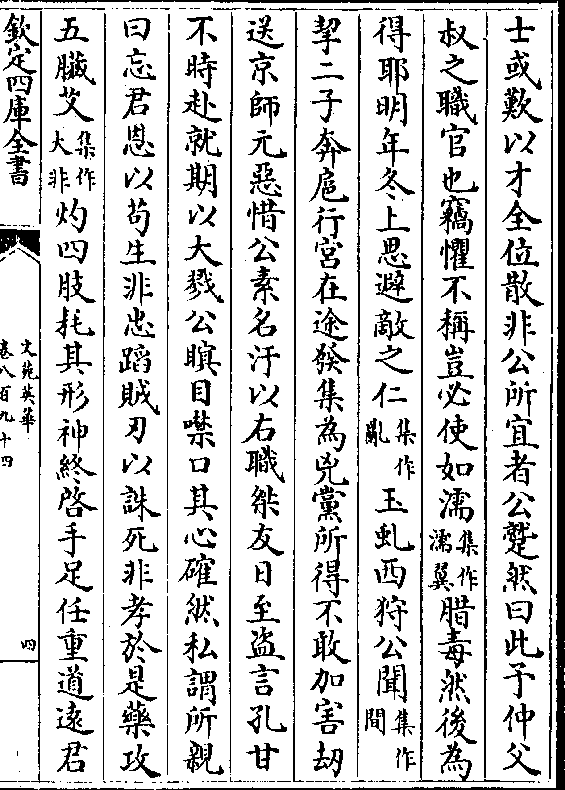 士或歎以才全位散非公所宜者公蹵然曰此予仲父
叔之職官也竊懼不稱豈必使如濡集作濡翼腊毒然後為
得耶明年冬上思避敵之仁集作亂玉虬西狩公聞集作間
挈二子奔扈行宮在途發集為兇黨所得不敢加害刼
送京師元惡惜公素名汙以右職桀友日至盜言孔甘
不時赴就期以大戮公瞑目噤口其心確然私謂所親
曰忘君恩以苟生非忠蹈賊刃以誅死非孝於是藥攻
五臟艾集作大非灼四肢耗其形神終啓手足任重道遠君
欽定四庫全書
文苑英華
卷八百九十四
四